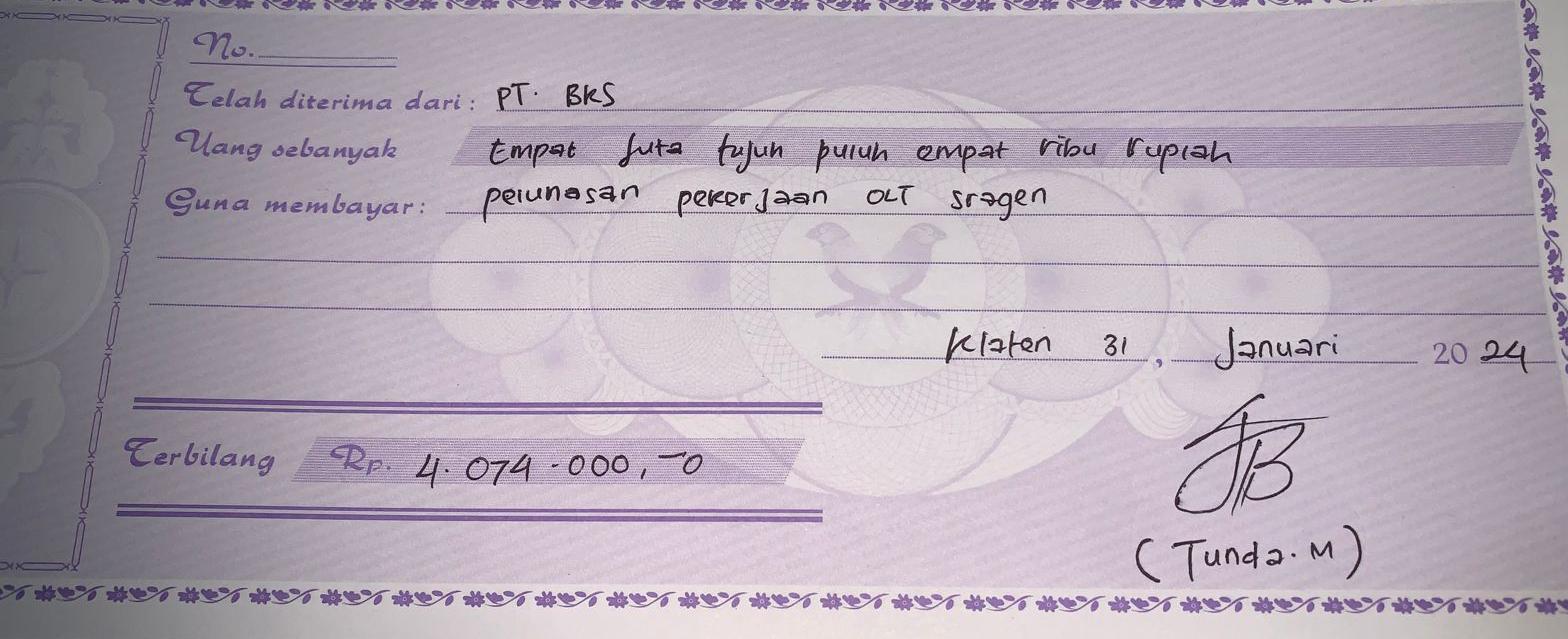 No.
Telah diterima dari : PT. BKS
Uang sebanyak Empat Juta tujuh puluh empat ribu rupiah
Guna membayar : pelunasan pekerjaan OLT sragen
Klaten 31 , Januari 2024
Terbilang Rp. 4.074.000,-0
(Tunda.M)